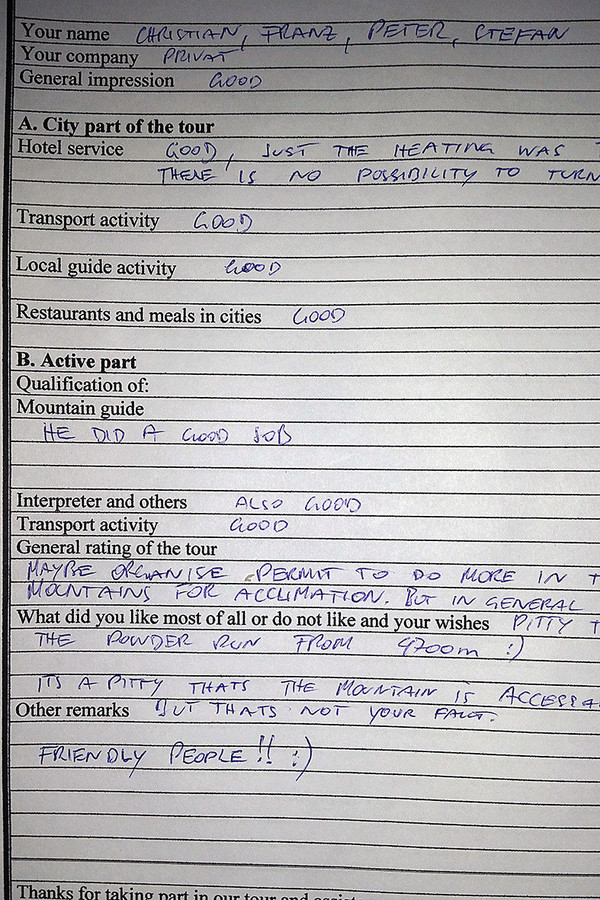 Your name CHRISTIAN, FRANZ, PETER, STEFAN
Your company PRIVAT
General impression GOOD
A. City part of the tour
Hotel service GOOD, JUST THE HEATING WAS
THERE IS NO POSSIBILITY TO TURN
Transport activity GOOD
Local guide activity GOOD
Restaurants and meals in cities GOOD
B. Active part
Qualification of:
Mountain guide
HE DID A GOOD JOB
Interpreter and others ALSO GOOD
Transport activity GOOD
General rating of the tour
MAYBE ORGANISE PERMIT TO DO MORE IN
MOUNTAINS FOR ACCLIMATION. BUT IN GENERAL
What did you like most of all or do not like and your wishes PITTY
THE POWDER RUN FROM 4700m :)
ITS A PITTY THATS THE MOUNTAIN IS
Other remarks BUT THATS NOT YOUR FAULT.
FRIENDLY PEOPLE!! :)
Thanks for taking part in our tour and